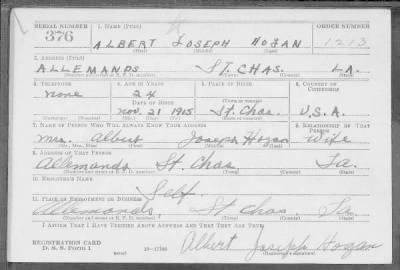 SERIAL NUMBER 1. NAME (Print) ORDER NUMBER
376 ALBERT JOSEPH HOGAN 1213
(First) (Middle) (Last)
2. ADDRESS (Print)
ALLEMANDS ST. CHAS. LA.
(Number and street or R. F. D. number) (Town) (County) (State)
3. TELEPHONE 4. AGE IN YEARS 5. PLACE OF BIRTH 6. COUNTRY OF CITIZENSHIP
none 24 St. Chas.
DATE OF BIRTH (Town or county)
Nov. 21 1915 La. U.S.A.
(Exchange) (Number) (Mo.) (Day) (Yr.) (State or country)
7. NAME OF PERSON WHO WILL ALWAYS KNOW YOUR ADDRESS 8. RELATIONSHIP OF THAT PERSON
Mrs. Albert Joseph Hogan Wife
(Mr., Mrs., Miss) (First) (Middle) (Last)
9. ADDRESS OF THAT PERSON
Allemands St. Chas. La.
(Number and street or R. F. D. number) (Town) (County) (State)
10. EMPLOYER'S NAME
Self.
11. PLACE OF EMPLOYMENT OR BUSINESS
Allemands, St Chas. La.
(Number and street or R. F. D. number) (Town) (County) (State)
I AFFIRM THAT I HAVE VERIFIED ABOVE ANSWERS AND THAT THEY ARE TRUE.
REGISTRATION CARD
D. S. S. Form 1 16—17105 Albert Joseph Hogan
(over) (Registrant's signature)